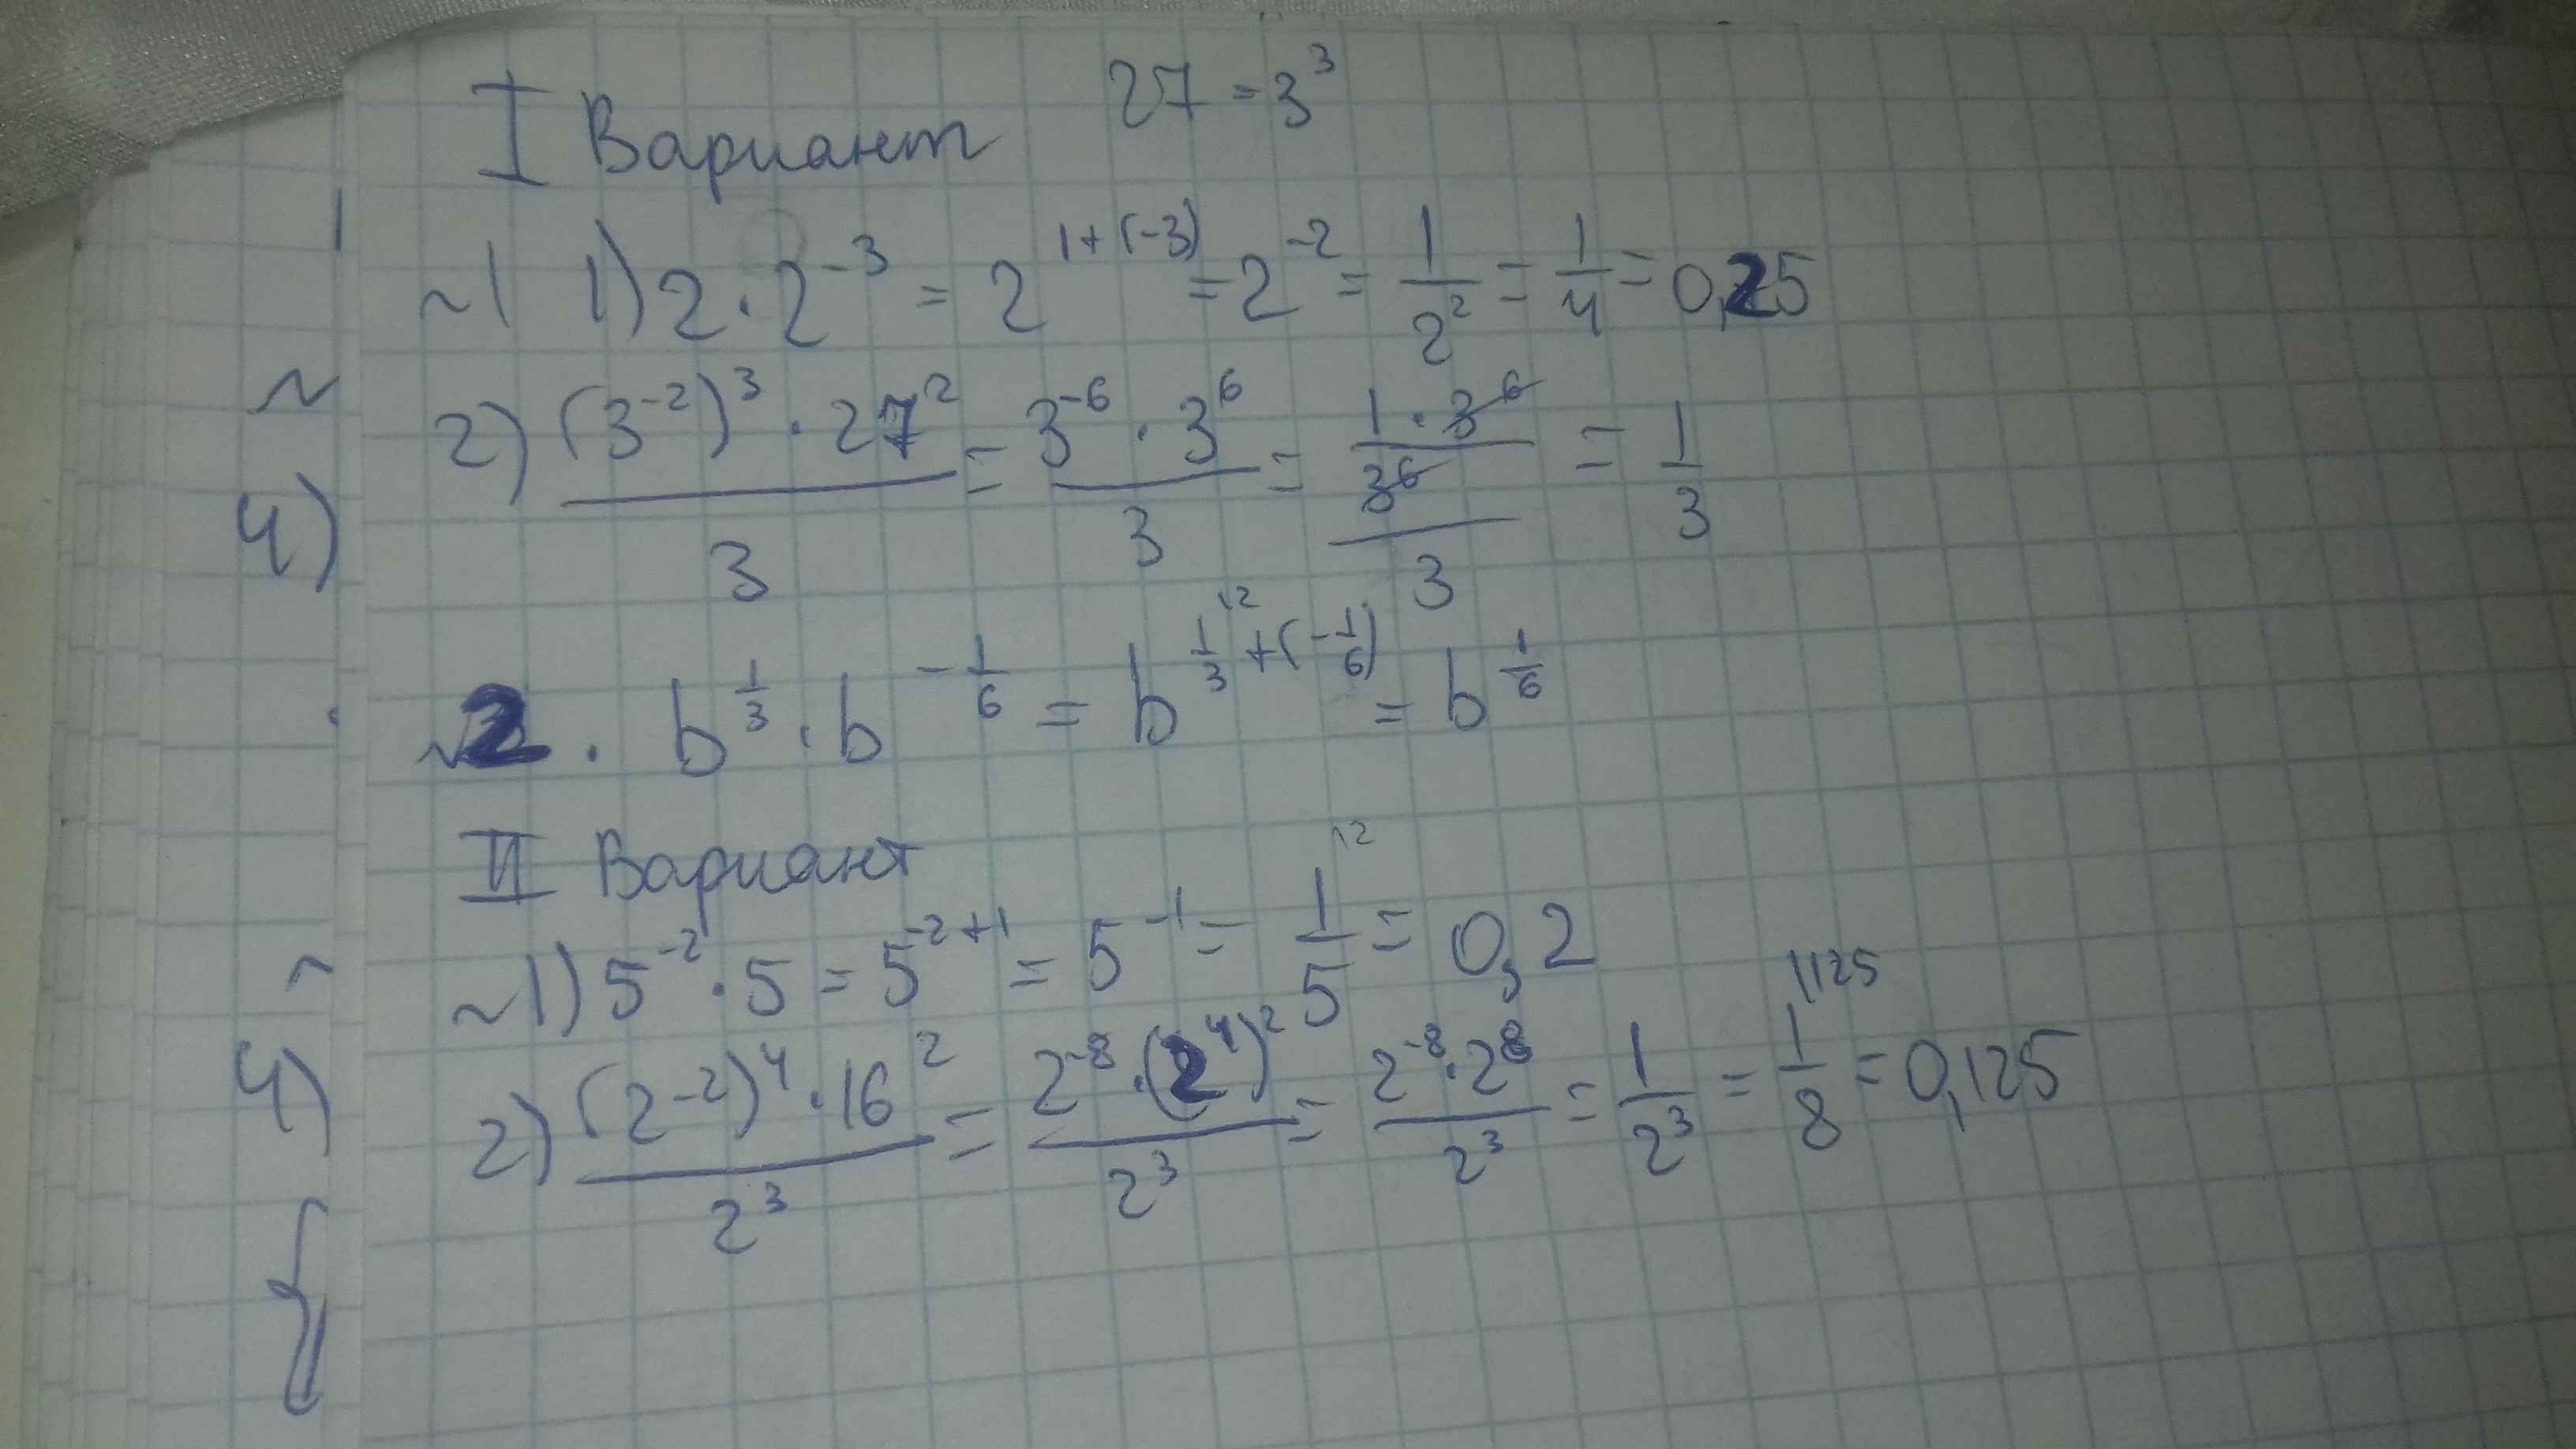 27 = 3³
I Вариант
~1 1) 2 · 2⁻³ = 2^(1+(-3)) = 2⁻² = 1/2² = 1/4 = 0,25
2) ((3⁻²)³ · 27²)/3 = (3⁻⁶ · 3⁶)/3 = ((1 · 3⁶)/3⁶)/3 = 1/3
12
~2. b^(1/3) · b^(-1/6) = b^(1/3+(-1/6)) = b^(1/6)
II Вариант
12
~1) 5⁻² · 5 = 5^(-2+1) = 5⁻¹ = 1/5 = 0,2
1125
2) ((2⁻²)⁴ · 16²)/2³ = (2⁻⁸ · (2⁴)²)/2³ = (2⁻⁸ · 2⁸)/2³ = 1/2³ = 1/8 = 0,125
~
4)
~
4)